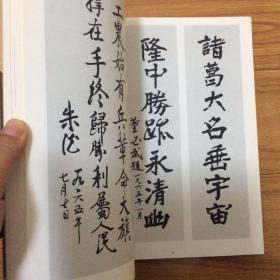 諸葛大名垂宇宙
隆中勝跡永清幽
董必武題一九六五年一月
工農始有兵革命大旗
撑在手終歸勝利屬人民
朱德
一九六五年
七月七日